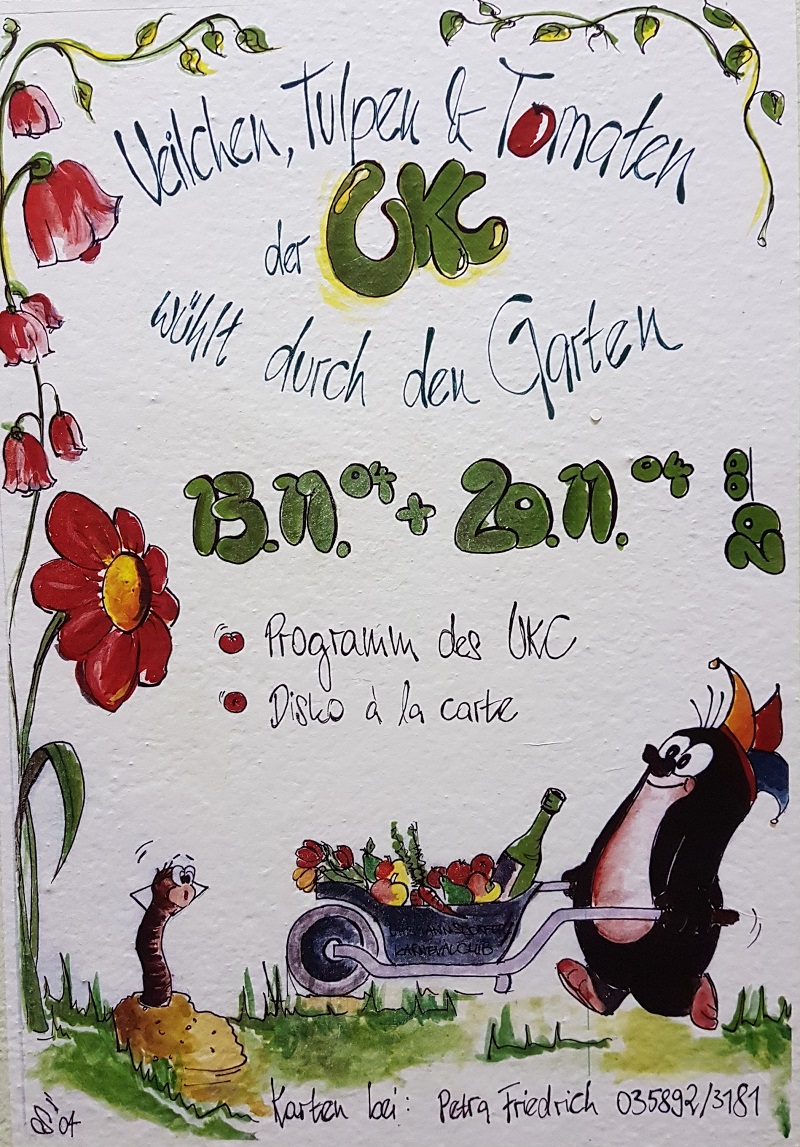 Veilchen, Tulpen & Tomaten
der UKC
wühlt durch den Garten
13.11.04 + 20.11.04 20 00
Programm des UKC
Disko à la carte
KARNEVALCLUB
Karten bei: Petra Friedrich 035892/3181
04